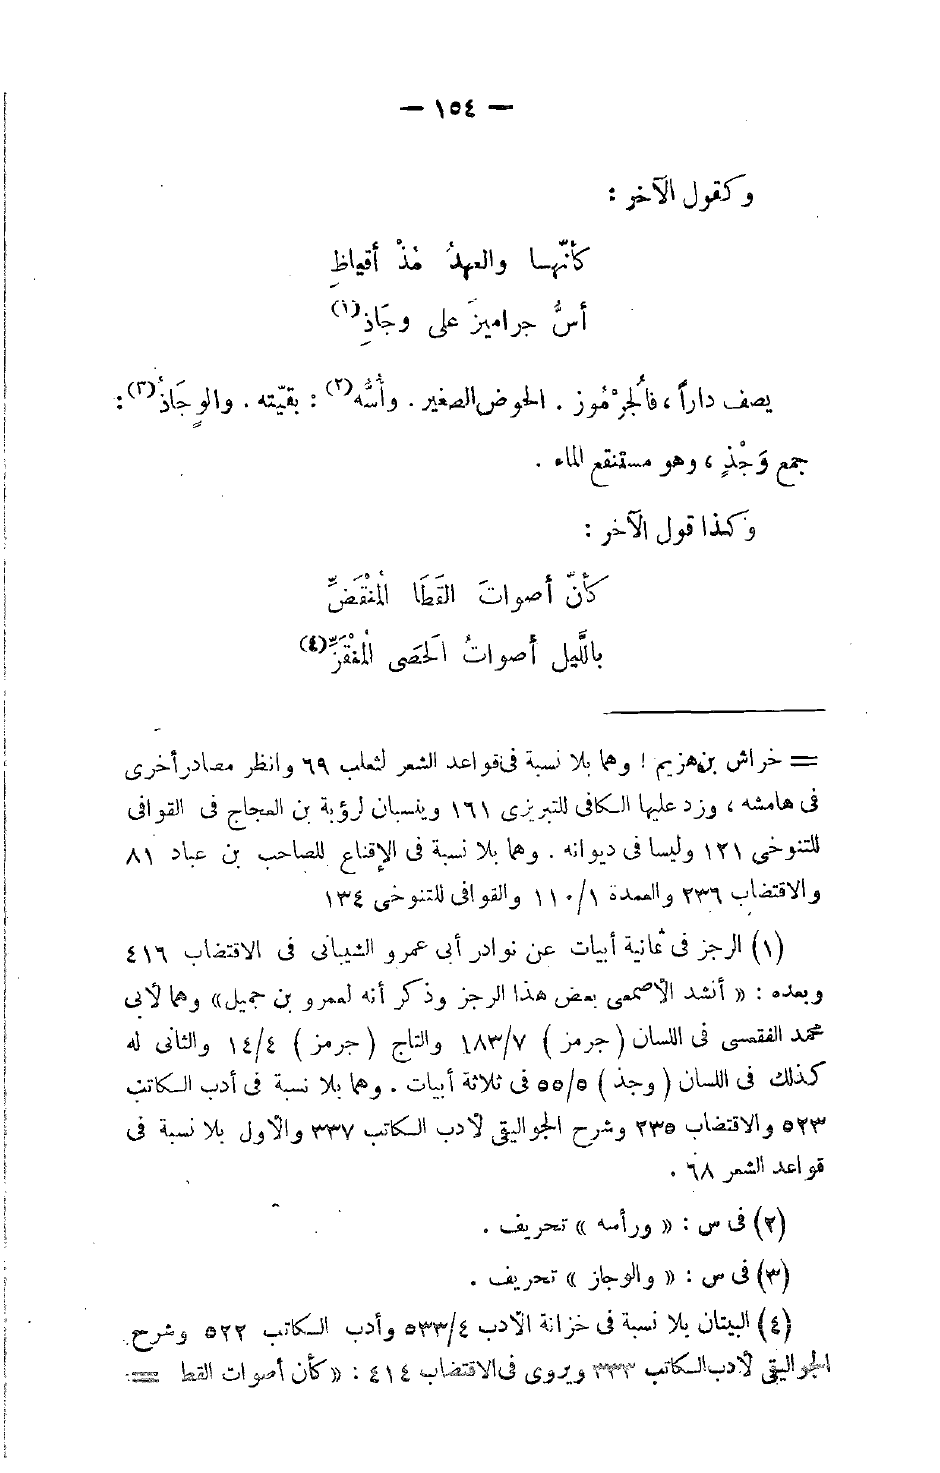 — ١٥٤ —
وكقول الآخر :
كأنّها والعهدُ مُذْ أقياظِ
أسُّ جراميزَ على وجَاذِ(١)
يصف داراً ، فالجُرْمُوز . الحوض الصغير . وأُسُّه(٢) : بقيّته . والوِجَاذُ(٣) :
جمع وَجْذٍ ، وهو مستنقع الماء .
وكذا قول الآخر :
كأنّ أصواتَ القَطَا المُنْقَضِّ
بالَّليل أصواتُ الحَصَى المُنْقَزِّ(٤)
= خراش بن هزيم ! وهما بلا نسبة فى قواعد الشعر لثعلب ٦٩ وانظر مصادر أخرى
فى هامشه ، وزد عليها الكافى للتبريزى ١٦١ وينسبان لرؤبة بن العجاج فى القوافى
للتنوخى ١٢١ وليسا فى ديوانه . وهما بلا نسبة فى الإقناع للصاحب بن عباد ٨١
والاقتضاب ٢٣٦ والعمدة ١/ ١١٠ والقوافى للتنوخى ١٣٤
(١) الرجز فى ثمانية أبيات عن نوادر أبى عمرو الشيبانى فى الاقتضاب ٤١٦
وبعده : « أنشد الأصمعى بعض هذا الرجز وذكر أنه لعمرو بن جميل» وهما لأبى
محمد الفقعسى فى اللسان ( جرمز ) ١٨٣/٧ والتاج ( جرمز ) ١٤/٤ والثانى له
كذلك فى اللسان ( وجذ ) ٥٥/٥ فى ثلاثة أبيات . وهما بلا نسبة فى أدب الكاتب
٥٢٣ والاقتضاب ٢٣٥ وشرح الجواليقى لأدب الكاتب ٣٣٧ والأول بلا نسبة فى
قواعد الشعر ٦٨ .
(٢) فى س : « ورأسه » تحريف .
(٣) فى س : « والوجاز » تحريف .
(٤) البيتان بلا نسبة فى خزانة الأدب ٥٣٣/٤ وأدب الكاتب ٥٢٢ وشرح
الجواليقى لأدب الكاتب ٣٣٣ ويروى فى الاقتضاب ٤١٤ : « كأن أصوات القطا =